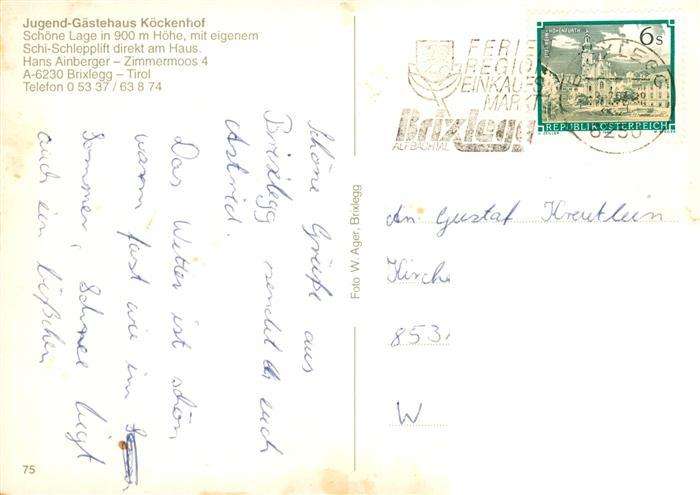 Jugend-Gästehaus Köckenhof
Schöne Lage in 900 m Höhe, mit eigenem
Schi-Schlepplift direkt am Haus.
Hans Ainberger – Zimmermoos 4
A-6230 Brixlegg – Tirol
Telefon 0 53 37 / 63 8 74
FERIEN
REGION
EINKAUFS
MARKT
Brixlegg
ALPBACHTAL
6 S
REPUBLIK ÖSTERREICH
BRIXLEGG
6230
Schöne Grüße aus
Brixlegg sendet euch
Astrid.
Das Wetter ist schön
warm fast wie im
Sommer, Schnee liegt
auch ein bißchen
Foto W. Ager, Brixlegg
An Gustaf Kreutlein
Kirche
853
W
75